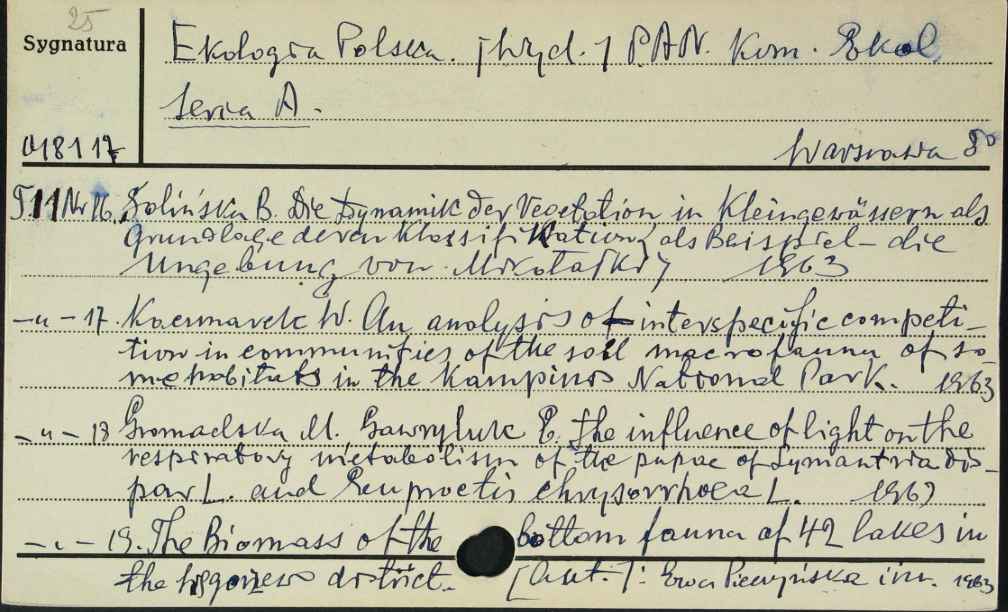 25
Sygnatura
Ekologia Polska. [Wyd.] PAN. Kom. Ekol.
Seria A.
018117
Warszawa 8°
T.11 Nr 16. Solińska B. Die Dynamik der Vegetation in Kleingewässern als
Grundlage deren Klassifikation, als Beispiel - die
Umgebung von Mikołajki 1963
-"- 17. Kaczmarek W. An analysis of interspecific competi-
tion in communities of the soil macrofauna of so
me habitats in the Kampinos National Park. 1963
-"- 18 Gromadska M. Gawryluk E. The influence of light on the
respiratory metabolism of the pupae of Lymantria dis-
par L. and Euproctis chrysorrhoea L. 1963
-"- 19. The Biomass of the bottom fauna of 42 lakes in
the district. [Aut.]: Ewa Pieczyńska i in. 1963